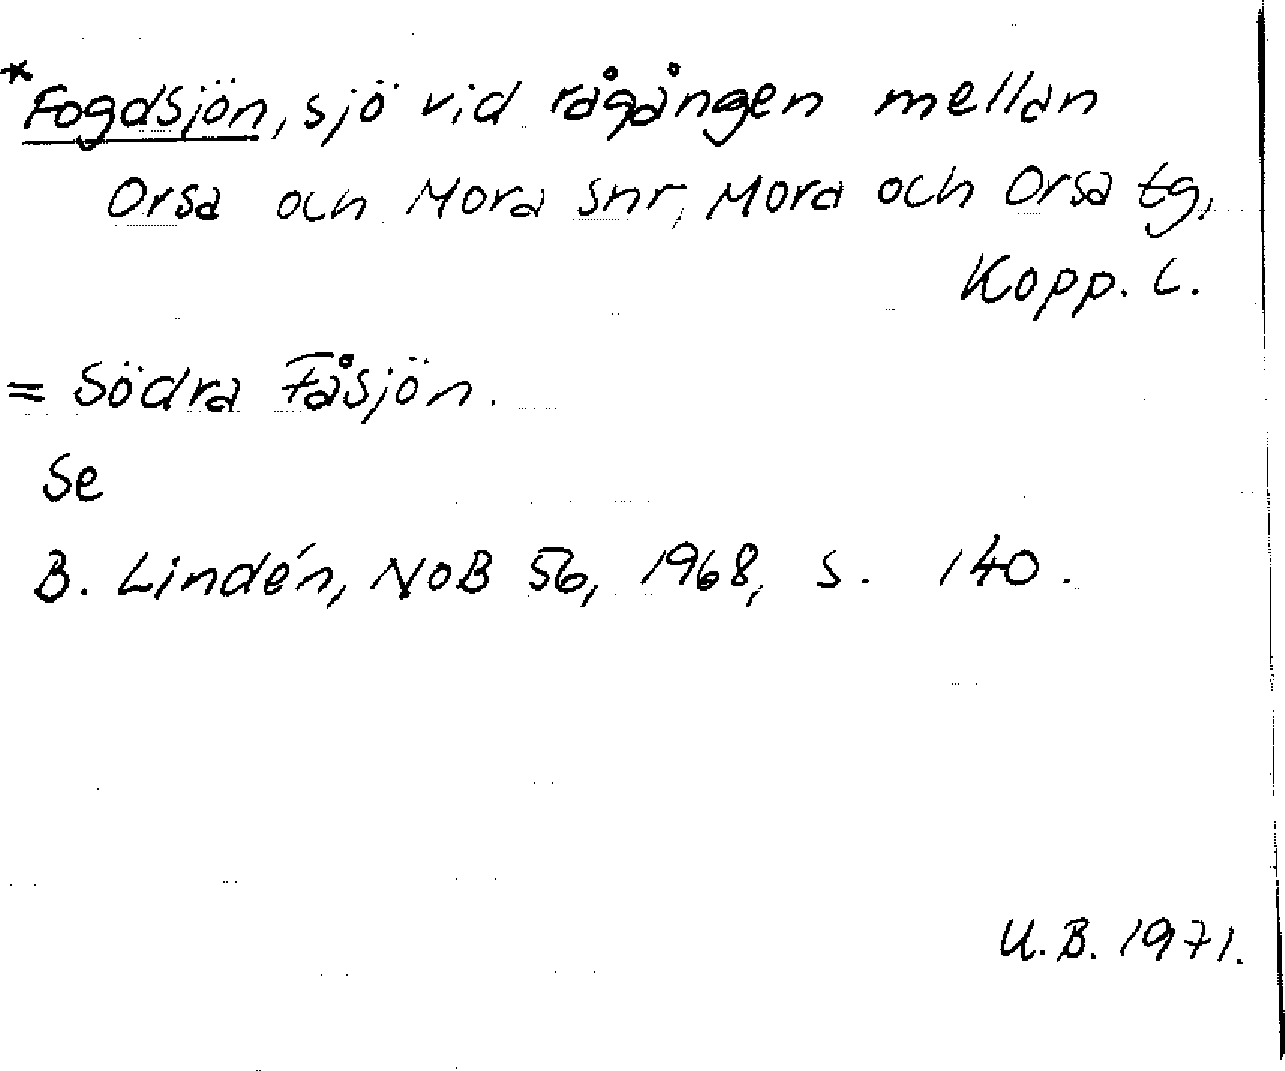 *Fogdsjön, sjö vid rågången mellan
Orsa och Mora snr, Mora och Orsa tg,
Kopp. l.
= Södra Fåsjön.
Se
B. Lindén, NoB 56, 1968, s. 140.
U.B. 1971.